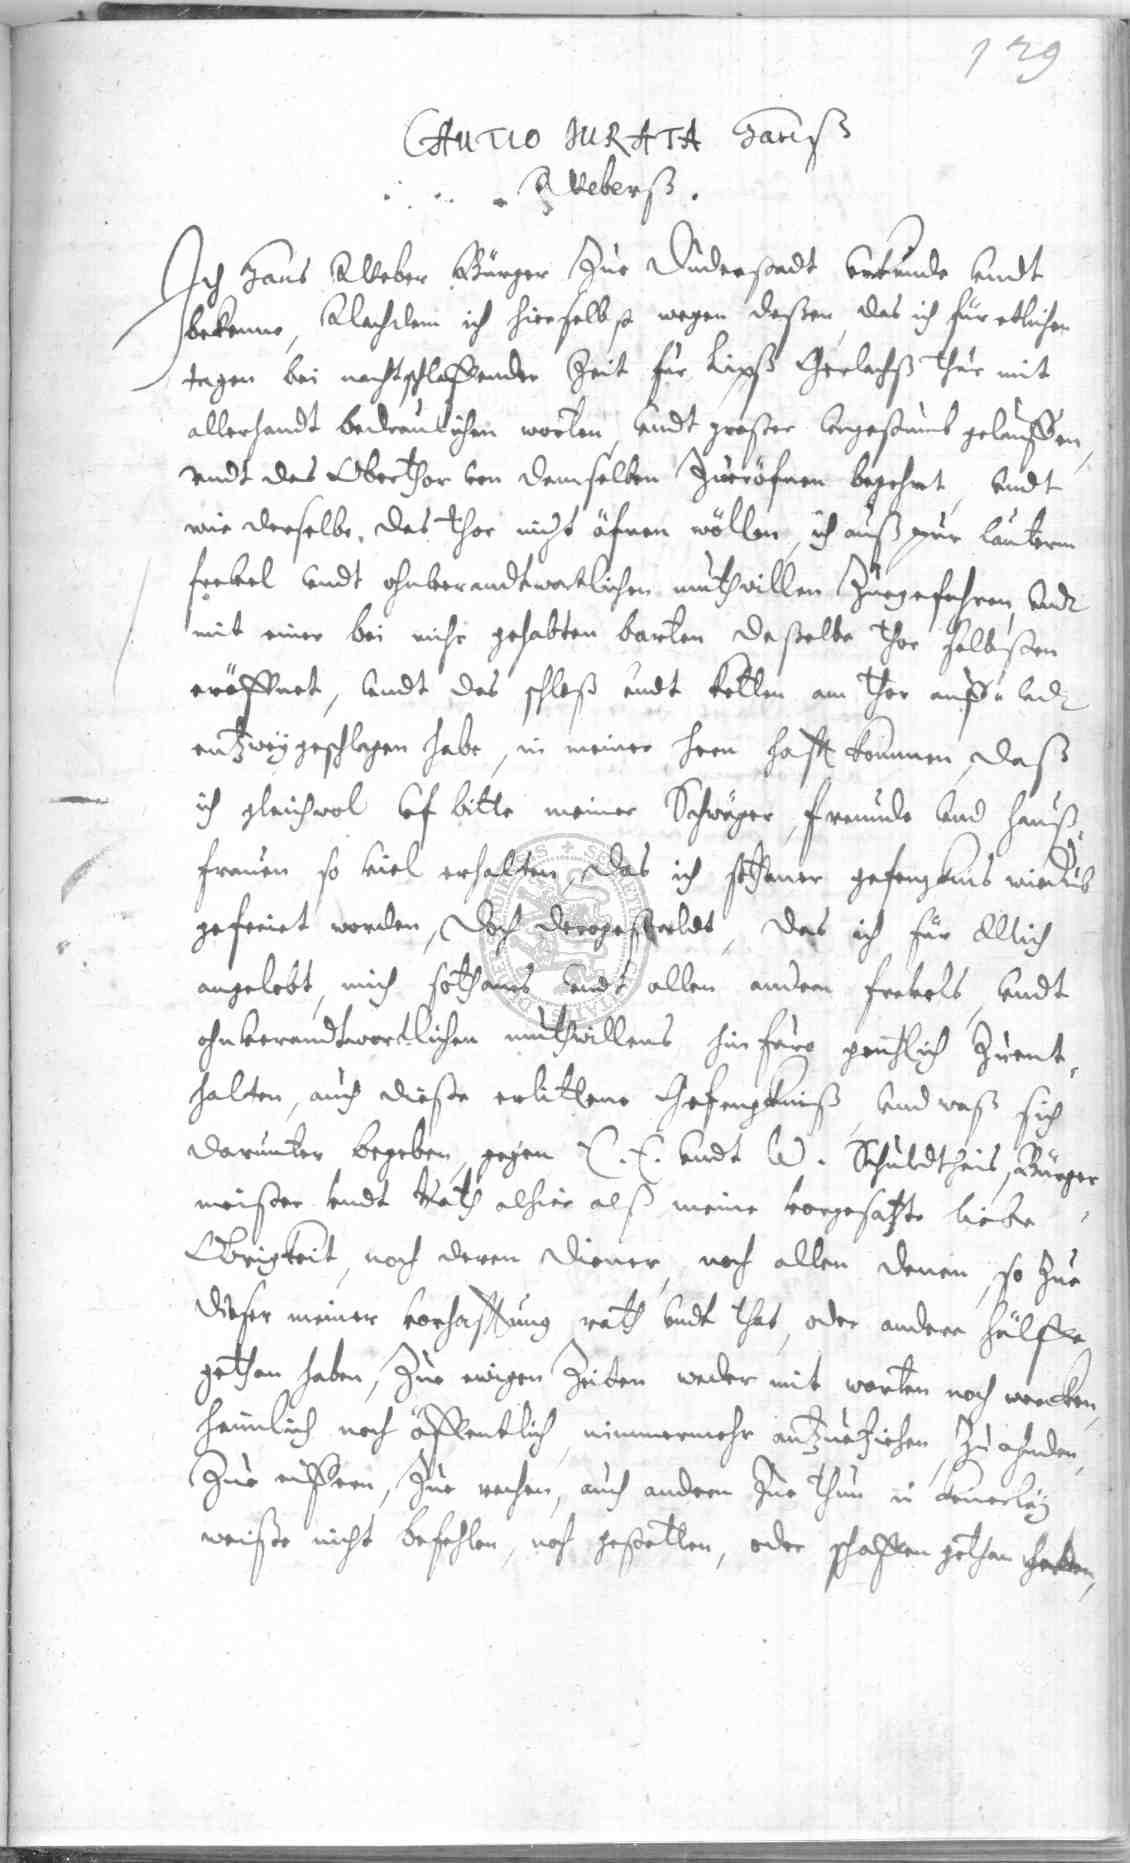 129
CAUTIO IURATA Hanß
Weberß.
Ich Hans Weber Bürger Zue Duderstadt urkunde undt
bekenne, Nachdem ich hierselbst wegen deßen, das ich für etlichen
tagen bei nachtschlaffender Zeit für Lipß Gerlachß thür mit
allerhandt bedraulichen worten, undt großer ungestumb gelauffen,
undt das Oberthor von demselben Zueröfnen begehrt, undt
wie derselbe das thor nicht öfnen wöllen, ich auß pur lauterm
frevel undt ohnverandtwortlichen muthwillen Zuegefahren, undt
mit einer bei mihr gehabten barten daßelbe thor selbsten
eröffnet, undt das schloß undt ketten am thor auff- undt
entzweÿgeschlagen habe, in meiner hern hafft kommen, daß
ich gleichwol uf bitte meiner Schwäger, freunde und hauß-
frauen so viel erhalten, das ich sothaner gefengknus wiederumb
gefreiet worden, doch dergestaldt, das ich für Allich
angelobt, mich sothanes undt allen andern frevels, undt
ohnverandtwortlichen muthwillens hinfüro gentzlich Zuent-
halten, auch dieße erlittene Gefengkniß, und waß sich
darunter begeben, gegen E. E. undt W. Schuldtheis, Bürger-
meister undt Rath alhier alß meine vorgesatzte liebe
Obrigkeit, noch deren diener, noch allen denen, so Zue
dieser meiner verhafftung rath undt that, oder andere hülffe
gethan haben, Zue ewigen Zeiten weder mit worten noch wercken,
heimlich noch öffentlich, nimmermehr antzuetziehen, Zu ahnden,
Zue eiffern, Zue rechen, auch andern Zue thun in keinerleÿ
weiße nicht befehlen, noch gestatten, oder schaffen gethan